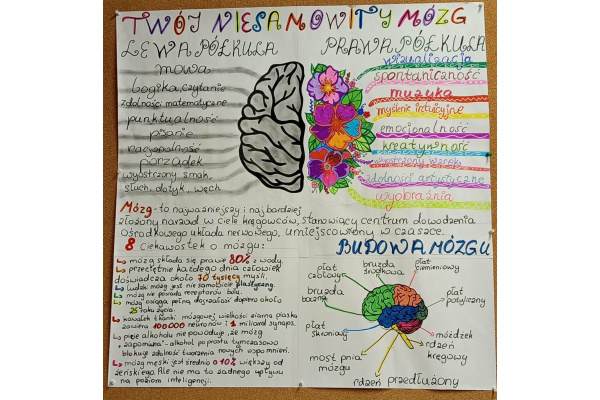 TWÓJ NIESAMOWITY MÓZG
LEWA PÓŁKULA
mowa
logika, czytanie
zdolności matematyczne
punktualność
pisanie
racjonalność
porządek
wyostrzony smak,
słuch, dotyk, węch
PRAWA PÓŁKULA
wizualizacja
spontaniczność
muzyka
myślenie intuicyjne
emocjonalność
kreatywność
wyostrzony wzrok
zdolności artystyczne
wyobraźnia
Mózg - to najważniejszy i najbardziej
złożony narząd w ciele kręgowców, stanowiący centrum dowodzenia
ośrodkowego układu nerwowego, umiejscowiony w czaszce.
8 ciekawostek o mózgu:
mózg składa się prawie 80% z wody.
przeciętnie każdego dnia człowiek
doświadcza około 70 tysięcy myśli.
ludzki mózg jest niesamowicie plastyczny.
mózg nie posiada receptorów bólu.
mózg osiąga pełną dojrzałość dopiero około
25 roku życia.
kawałek tkanki mózgowej wielkości ziarna piasku
zawiera 100 000 neuronów i 1 miliard synaps.
picie alkoholu nie powoduje, że mózg
"zapomina" - alkohol po prostu tymczasowo
blokuje zdolność tworzenia nowych wspomnień.
mózg męski jest średnio o 10% większy od
żeńskiego. Ale nie ma to żadnego wpływu
na poziom inteligencji.
BUDOWA MÓZGU
płat czołowy
bruzda środkowa
płat ciemieniowy
bruzda boczna
płat potyliczny
płat skroniowy
móżdżek
rdzeń kręgowy
most pnia mózgu
rdzeń przedłużony